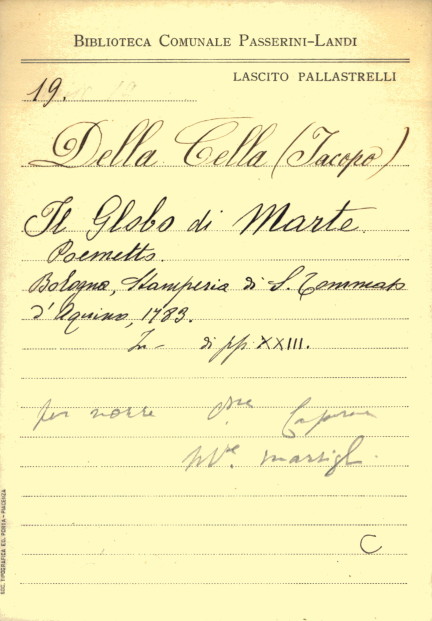 BIBLIOTECA COMUNALE PASSERINI-LANDI
LASCITO PALLASTRELLI
19.
Della Cella (Jacopo)
Il Globo di Marte.
Poemetto.
Bologna, Stamperia di S. Tommaso
d'Aquino, 1783.
In- di pp. XXIII.
per nozze
Mse. Marsigl.
C
SOC. TIPOGRAFICA ED. PORTA - PIACENZA